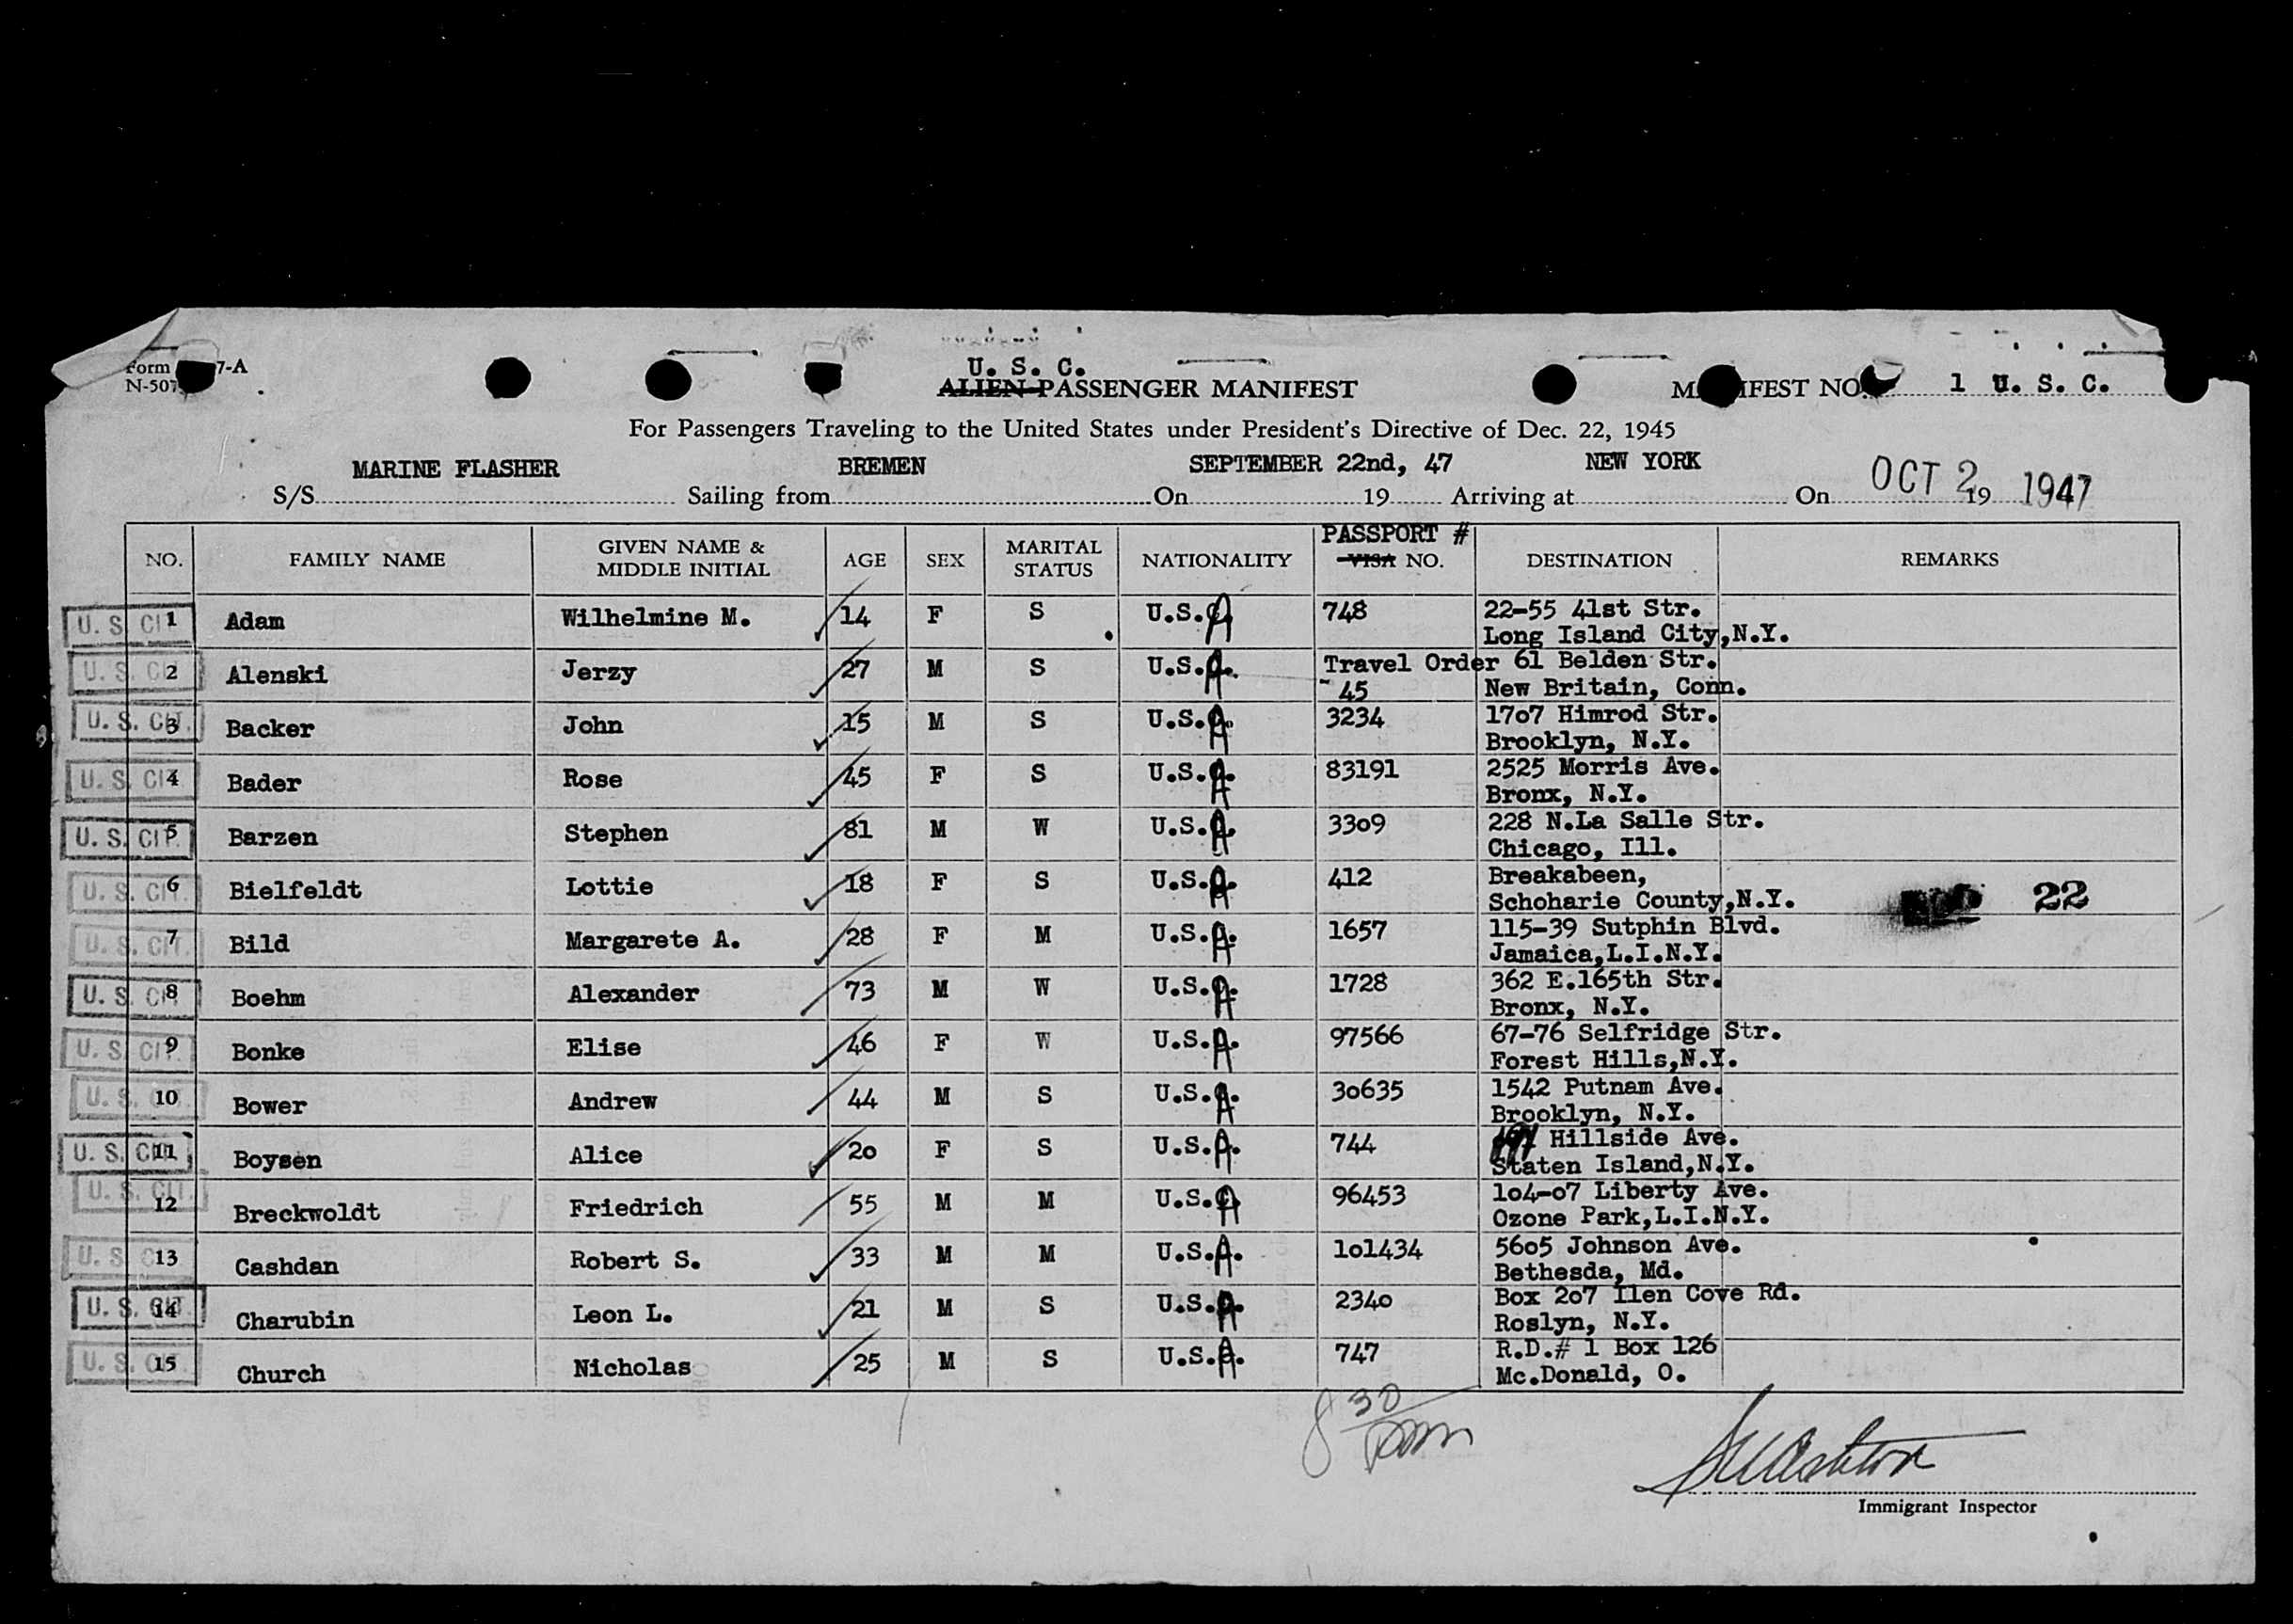 Form 7-A
N-507
U. S. C.
ALIEN PASSENGER MANIFEST
MANIFEST NO. 1 U. S. C.
For Passengers Traveling to the United States under President's Directive of Dec. 22, 1945
S/S MARINE FLASHER Sailing from BREMEN On SEPTEMBER 22nd, 1947 Arriving at NEW YORK On OCT 2 19 1947
NO. FAMILY NAME GIVEN NAME & MIDDLE INITIAL AGE SEX MARITAL STATUS NATIONALITY PASSPORT # VISA NO. DESTINATION REMARKS
U. S. CIT. 1 Adam Wilhelmine M. 14 F S U.S.A 748 22-55 41st Str.
Long Island City,N.Y.
U. S. CIT. 2 Alenski Jerzy 27 M S U.S.A. Travel Order 61 Belden Str.
45 New Britain, Conn.
U. S. CIT. 3 Backer John 15 M S U.S.A. 3234 1707 Himrod Str.
Brooklyn, N.Y.
U. S. CIT. 4 Bader Rose 45 F S U.S.A. 83191 2525 Morris Ave.
Bronx, N.Y.
U. S. CIT. 5 Barzen Stephen 81 M W U.S.A. 3309 228 N.La Salle Str.
Chicago, Ill.
U. S. CIT. 6 Bielfeldt Lottie 18 F S U.S.A. 412 Breakabeen,
Schoharie County,N.Y. 22
U. S. CIT. 7 Bild Margarete A. 28 F M U.S.A. 1657 115-39 Sutphin Blvd.
Jamaica,L.I.N.Y.
U. S. CIT. 8 Boehm Alexander 73 M W U.S.A. 1728 362 E.165th Str.
Bronx, N.Y.
U. S. CIT. 9 Bonke Elise 46 F W U.S.A. 97566 67-76 Selfridge Str.
Forest Hills,N.Y.
U. S. CIT. 10 Bower Andrew 44 M S U.S.A. 30635 1542 Putnam Ave.
Brooklyn, N.Y.
U. S. CIT. 11 Boysen Alice 20 F S U.S.A. 744 Hillside Ave.
Staten Island,N.Y.
U. S. CIT. 12 Breckwoldt Friedrich 55 M M U.S.A 96453 104-07 Liberty Ave.
Ozone Park,L.I.N.Y.
U. S. CIT. 13 Cashdan Robert S. 33 M M U.S.A. 101434 5605 Johnson Ave.
Bethesda, Md.
U. S. CIT. 14 Charubin Leon L. 21 M S U.S.A. 2340 Box 207 Ilen Cove Rd.
Roslyn, N.Y.
U. S. CIT. 15 Church Nicholas 25 M S U.S.A. 747 R.D.# 1 Box 126
Mc.Donald, O.
8 30 pm
Immigrant Inspector